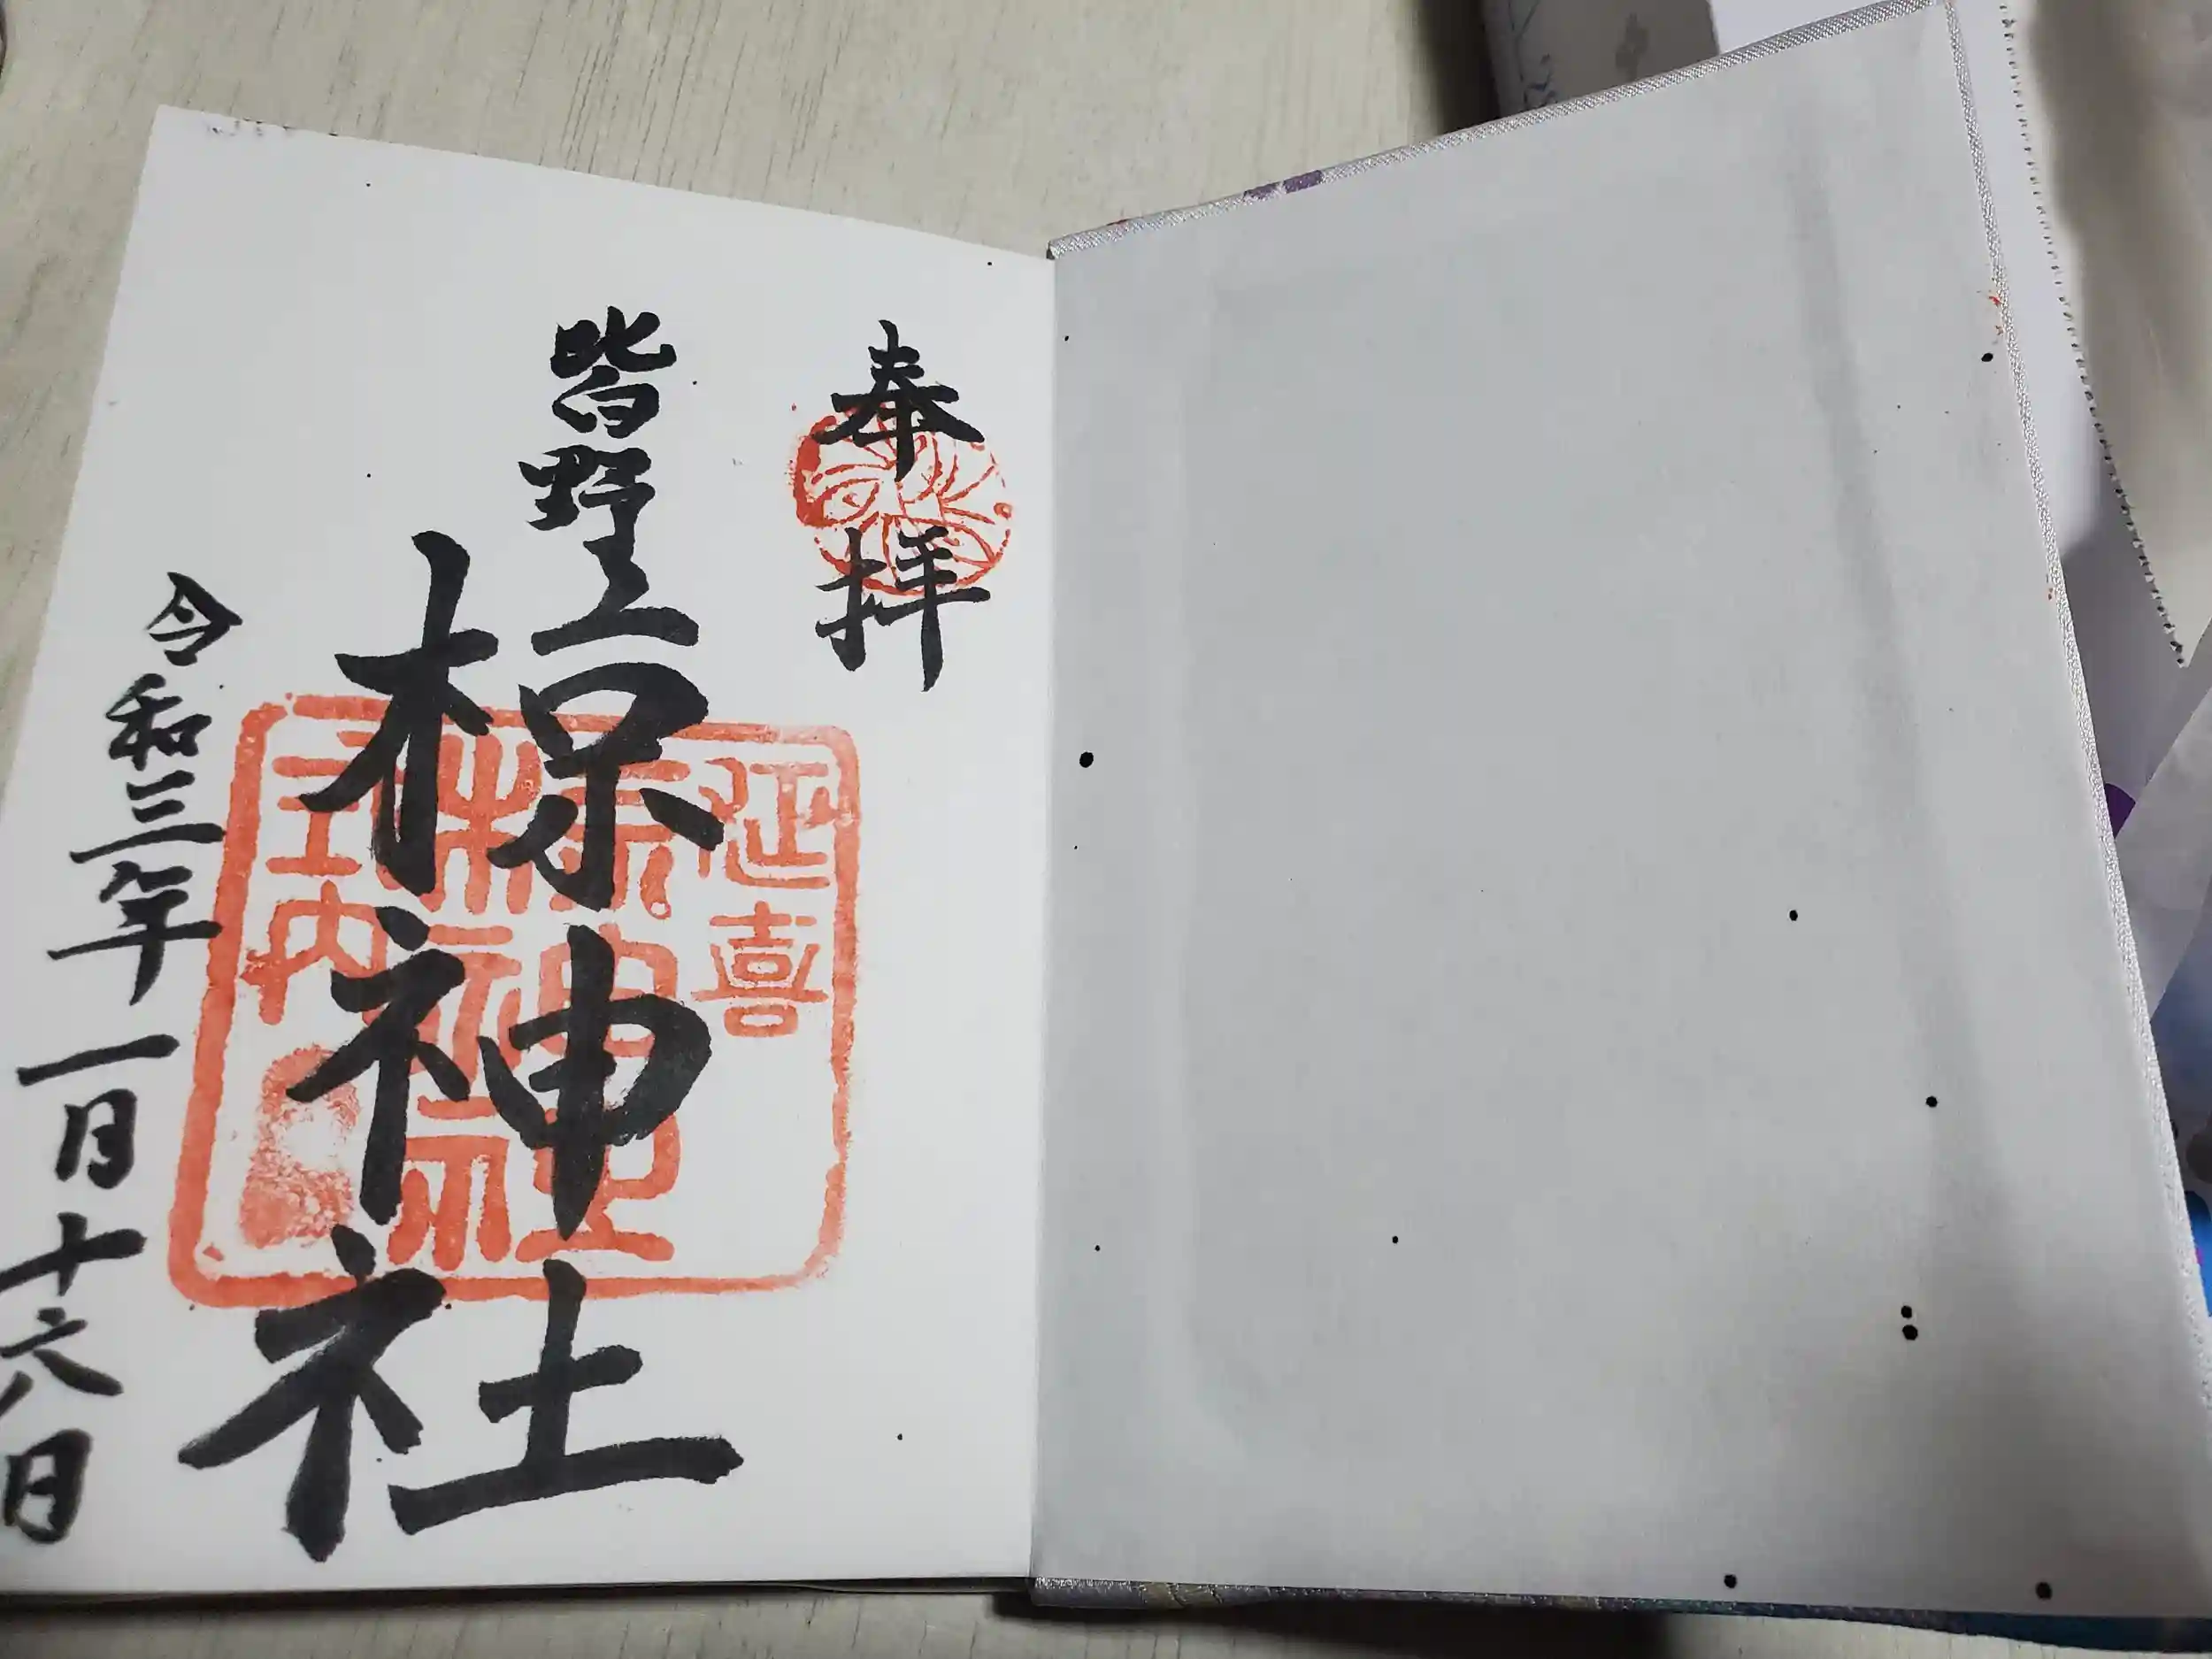 奉拝
皆野
椋神社
令和三年一月十六日
延喜
式内